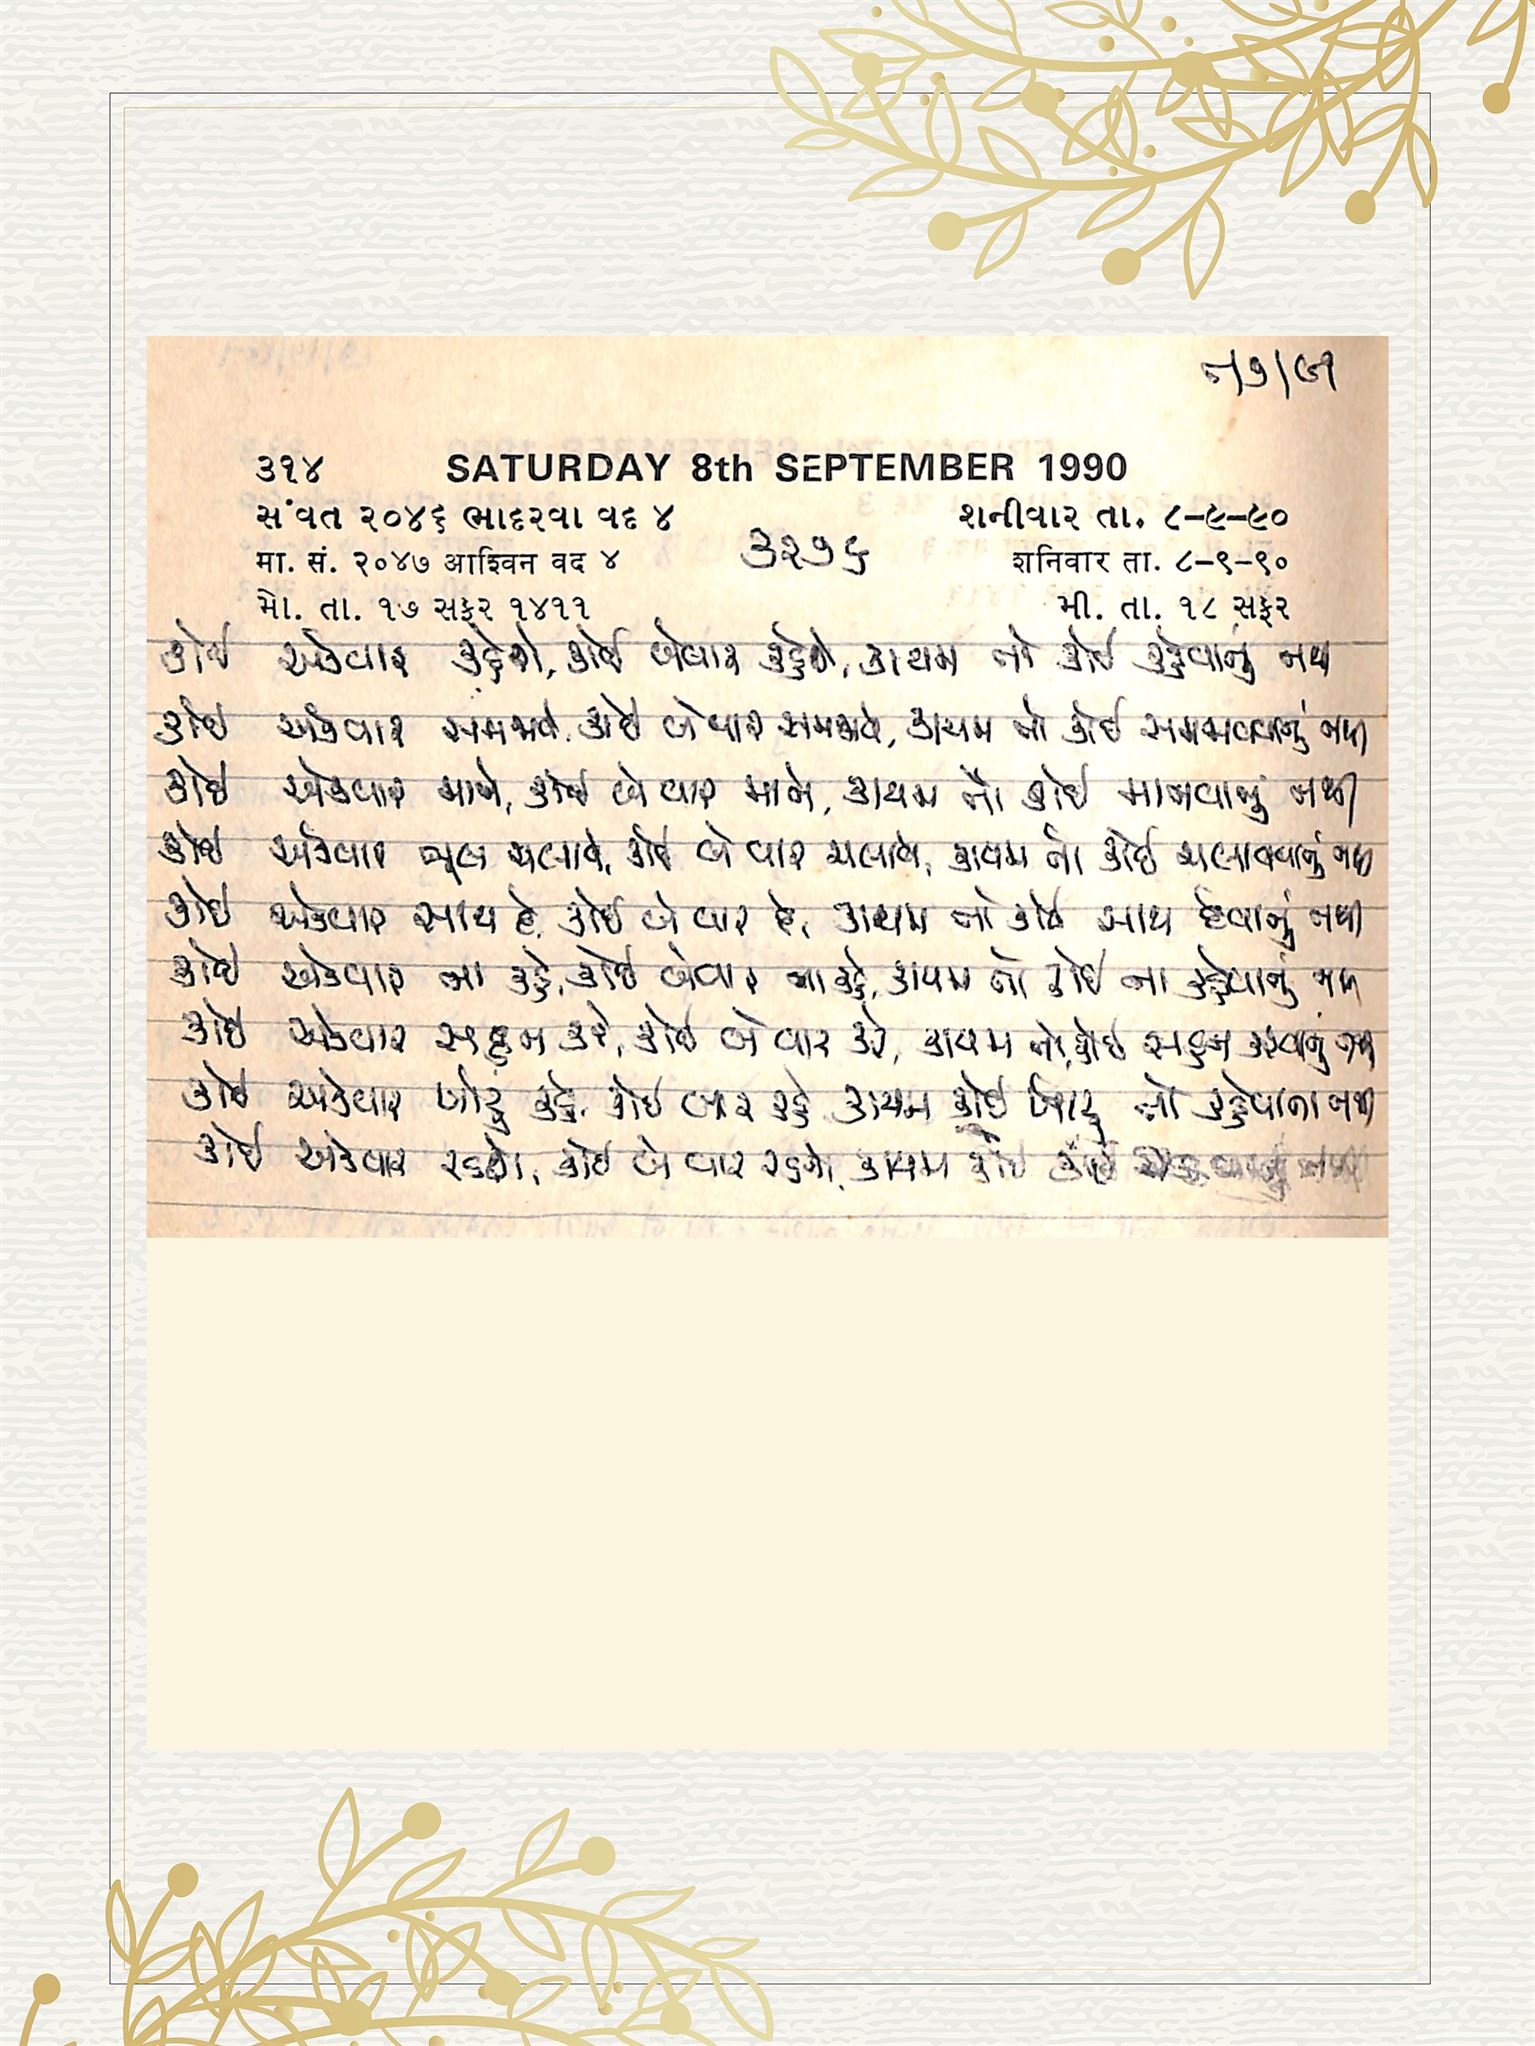 ૩૧૪ SATURDAY 8th SEPTEMBER 1990
સંવત ૨૦૪૬ ભાદરવા વદ ૪ શનીવાર તા. ૮-૯-૯૦
मा. सं. २०४७ आश्विन वद ४ शनिवार ता. ८-९-९०
મો. તા. ૧૭ સફર ૧૪૧૧ મી. તા. ૧૮ સફર
૩૨૭૬
કોઈ એકવાર કહેશે, કોઈ બેવાર કહેશે, કાયમ તો કોઈ કહેવાનું નથી
કોઈ એકવાર સમજાવે, કોઈ બે વાર સમજાવે, કાયમ તો કોઈ સમજાવવાનું નથી
કોઈ એકવાર માને, કોઈ બે વાર માને, કાયમ તો કોઈ માનવાનું નથી
કોઈ એકવાર ભૂલ ચલાવે, કોઈ બે વાર ચલાવે, કાયમ તો કોઈ ચલાવવાનું નથી
કોઈ એકવાર સાથ દે, કોઈ બે વાર દે, કાયમ તો કોઈ સાથ દેવાનું નથી
કોઈ એકવાર ના કહે, કોઈ બેવાર ના કહે, કાયમ તો કોઈ ના કહેવાનું નથી
કોઈ એકવાર સહન કરે, કોઈ બે વાર કરે, કાયમ તો કોઈ સહન કરવાનું નથી
કોઈ એકવાર ખોટું કહે, કોઈ બાર કહે કાયમ કોઈ ખોટું તો કહેવાના નથી
કોઈ એકવાર રડશે, કોઈ બે વાર રડશે, કાયમ કોઈ નથી